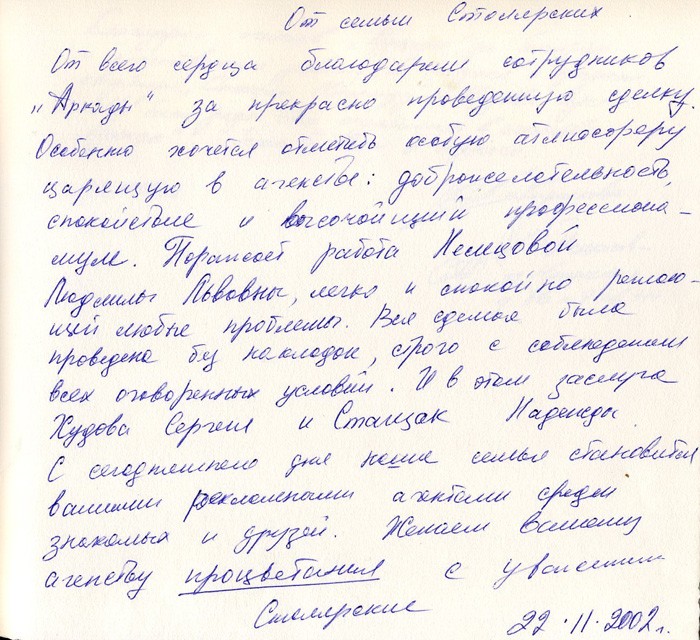 От семьи Столярских
От всего сердца благодарели сотрудников
„Аркады" за прекрасно проведенную сделку.
Особенно хочется отметить особую атмосферу
царящую в агенстве: доброжелательность,
спокойствие и высочайщий профессиона-
лизм. Поражает работа Немцовой
Людмилы Львовны, легко и спокойно решаю-
щей любые проблемы. Вся сделка была
проведена без накладок, строго с соблюдением
всех оговоренных условий. И в этом заслуга
Худова Сергея и Станщак Надежды
С сегодняшнего дня наша семья становится
вашими рекламными агентами среди
знакомых и друзей. Желаем вашему
агенству процветания с уважением
Столярские
22.11.2002г.